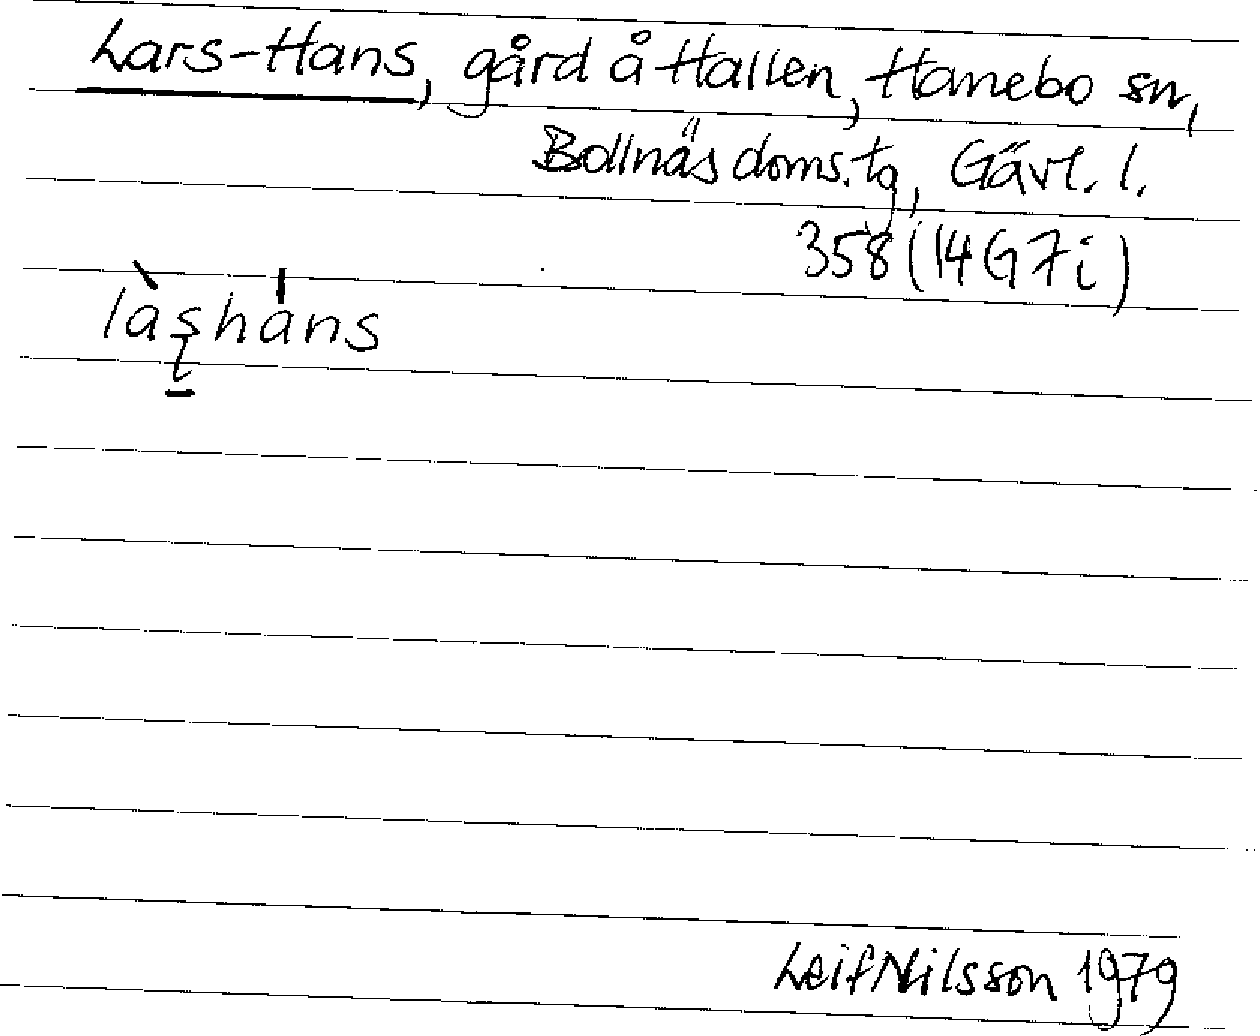 Lars-Hans, gård å Hallen, Hanebo sn,
Bollnäs doms. tg, Gävl. l.
358 (14G7i)
làʂháns
Leif Nilsson 1979